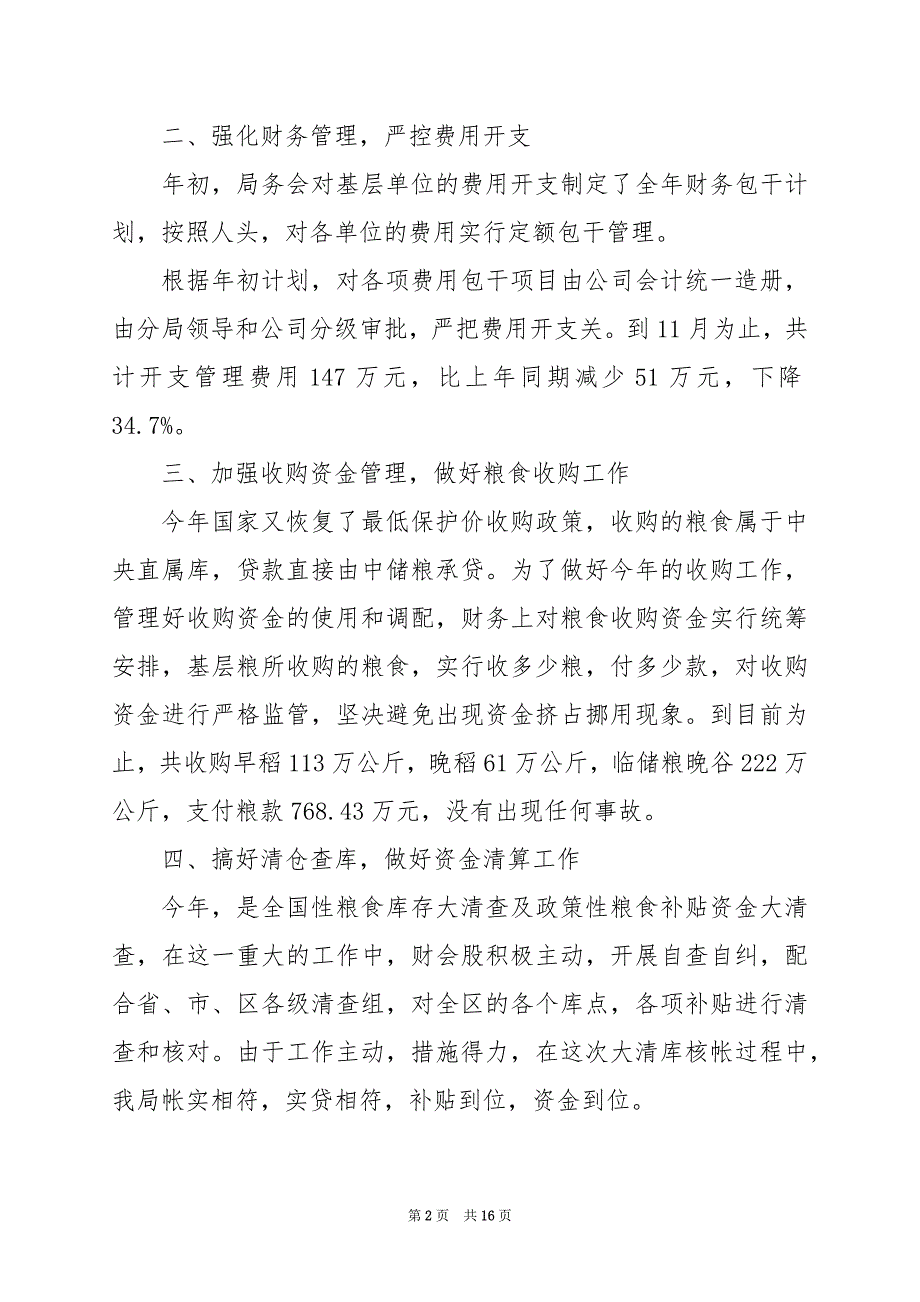 二、强化财务管理，严控费用开支
年初，局务会对基层单位的费用开支制定了全年财务包干计
划，按照人头，对各单位的费用实行定额包干管理。
根据年初计划，对各项费用包干项目由公司会计统一造册，
由分局领导和公司分级审批，严把费用开支关。到 11 月为止，共
计开支管理费用 147 万元，比上年同期减少 51 万元，下降
34.7%。
三、加强收购资金管理，做好粮食收购工作
今年国家又恢复了最低保护价收购政策，收购的粮食属于中
央直属库，贷款直接由中储粮承贷。为了做好今年的收购工作，
管理好收购资金的使用和调配，财务上对粮食收购资金实行统筹
安排，基层粮所收购的粮食，实行收多少粮，付多少款，对收购
资金进行严格监管，坚决避免出现资金挤占挪用现象。到目前为
止，共收购早稻 113 万公斤，晚稻 61 万公斤，临储粮晚谷 222 万
公斤，支付粮款 768.43 万元，没有出现任何事故。
四、搞好清仓查库，做好资金清算工作
今年，是全国性粮食库存大清查及政策性粮食补贴资金大清
查，在这一重大的工作中，财会股积极主动，开展自查自纠，配
合省、市、区各级清查组，对全区的各个库点，各项补贴进行清
查和核对。由于工作主动，措施得力，在这次大清库核帐过程中，
我局帐实相符，实贷相符，补贴到位，资金到位。
第 2 页 共 16 页